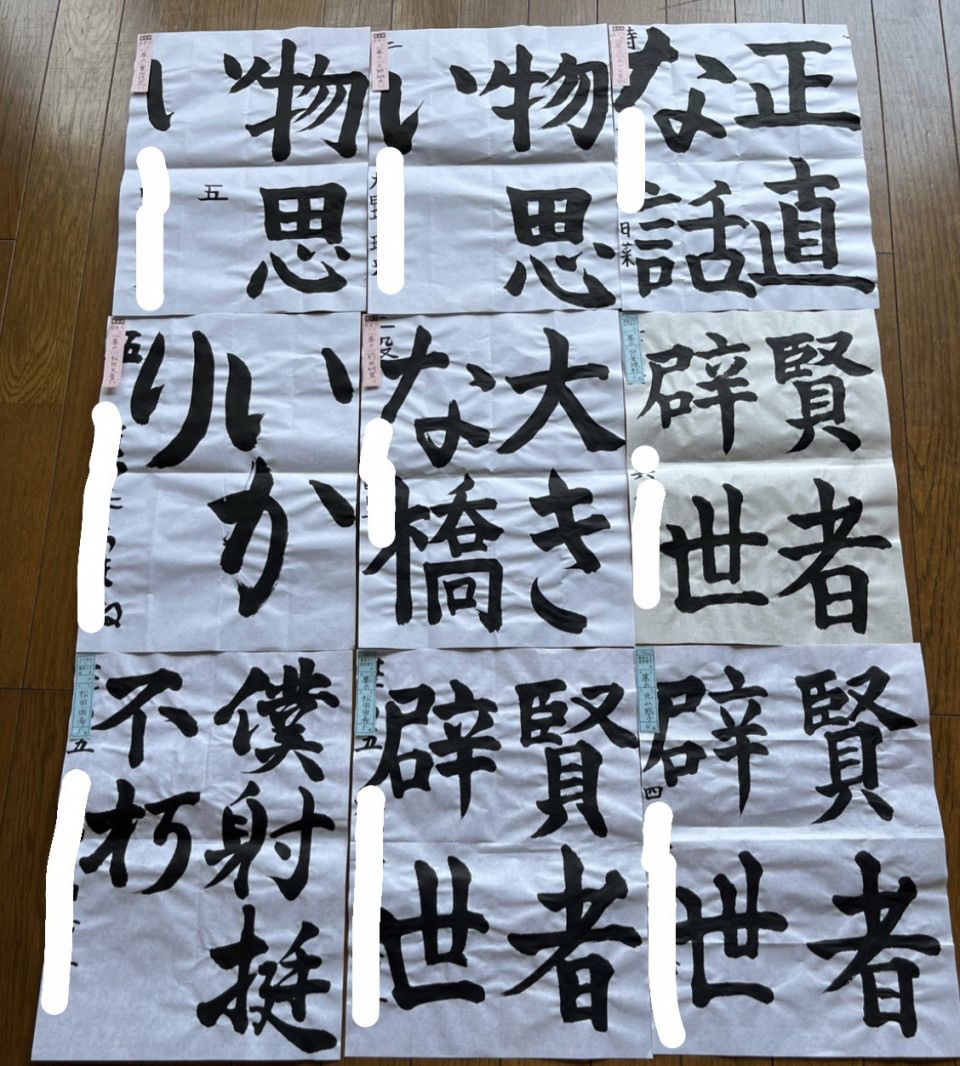 物思
い
五
物思
い
正直
な話
日菜
いか
り
大き
な橋
賢者
辟世
僕射挺
不朽
五
賢者
辟世
五
賢者
辟世
四